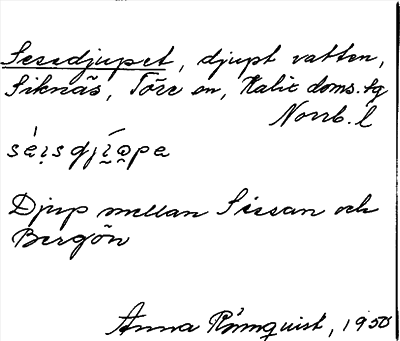 Sessdjupet, djupt vatten,
Siknäs, Töre sn, Kalix doms.tg
Norrb. l
Djup mellan Sissan och
Bergön
Anna Rönnquist, 1950